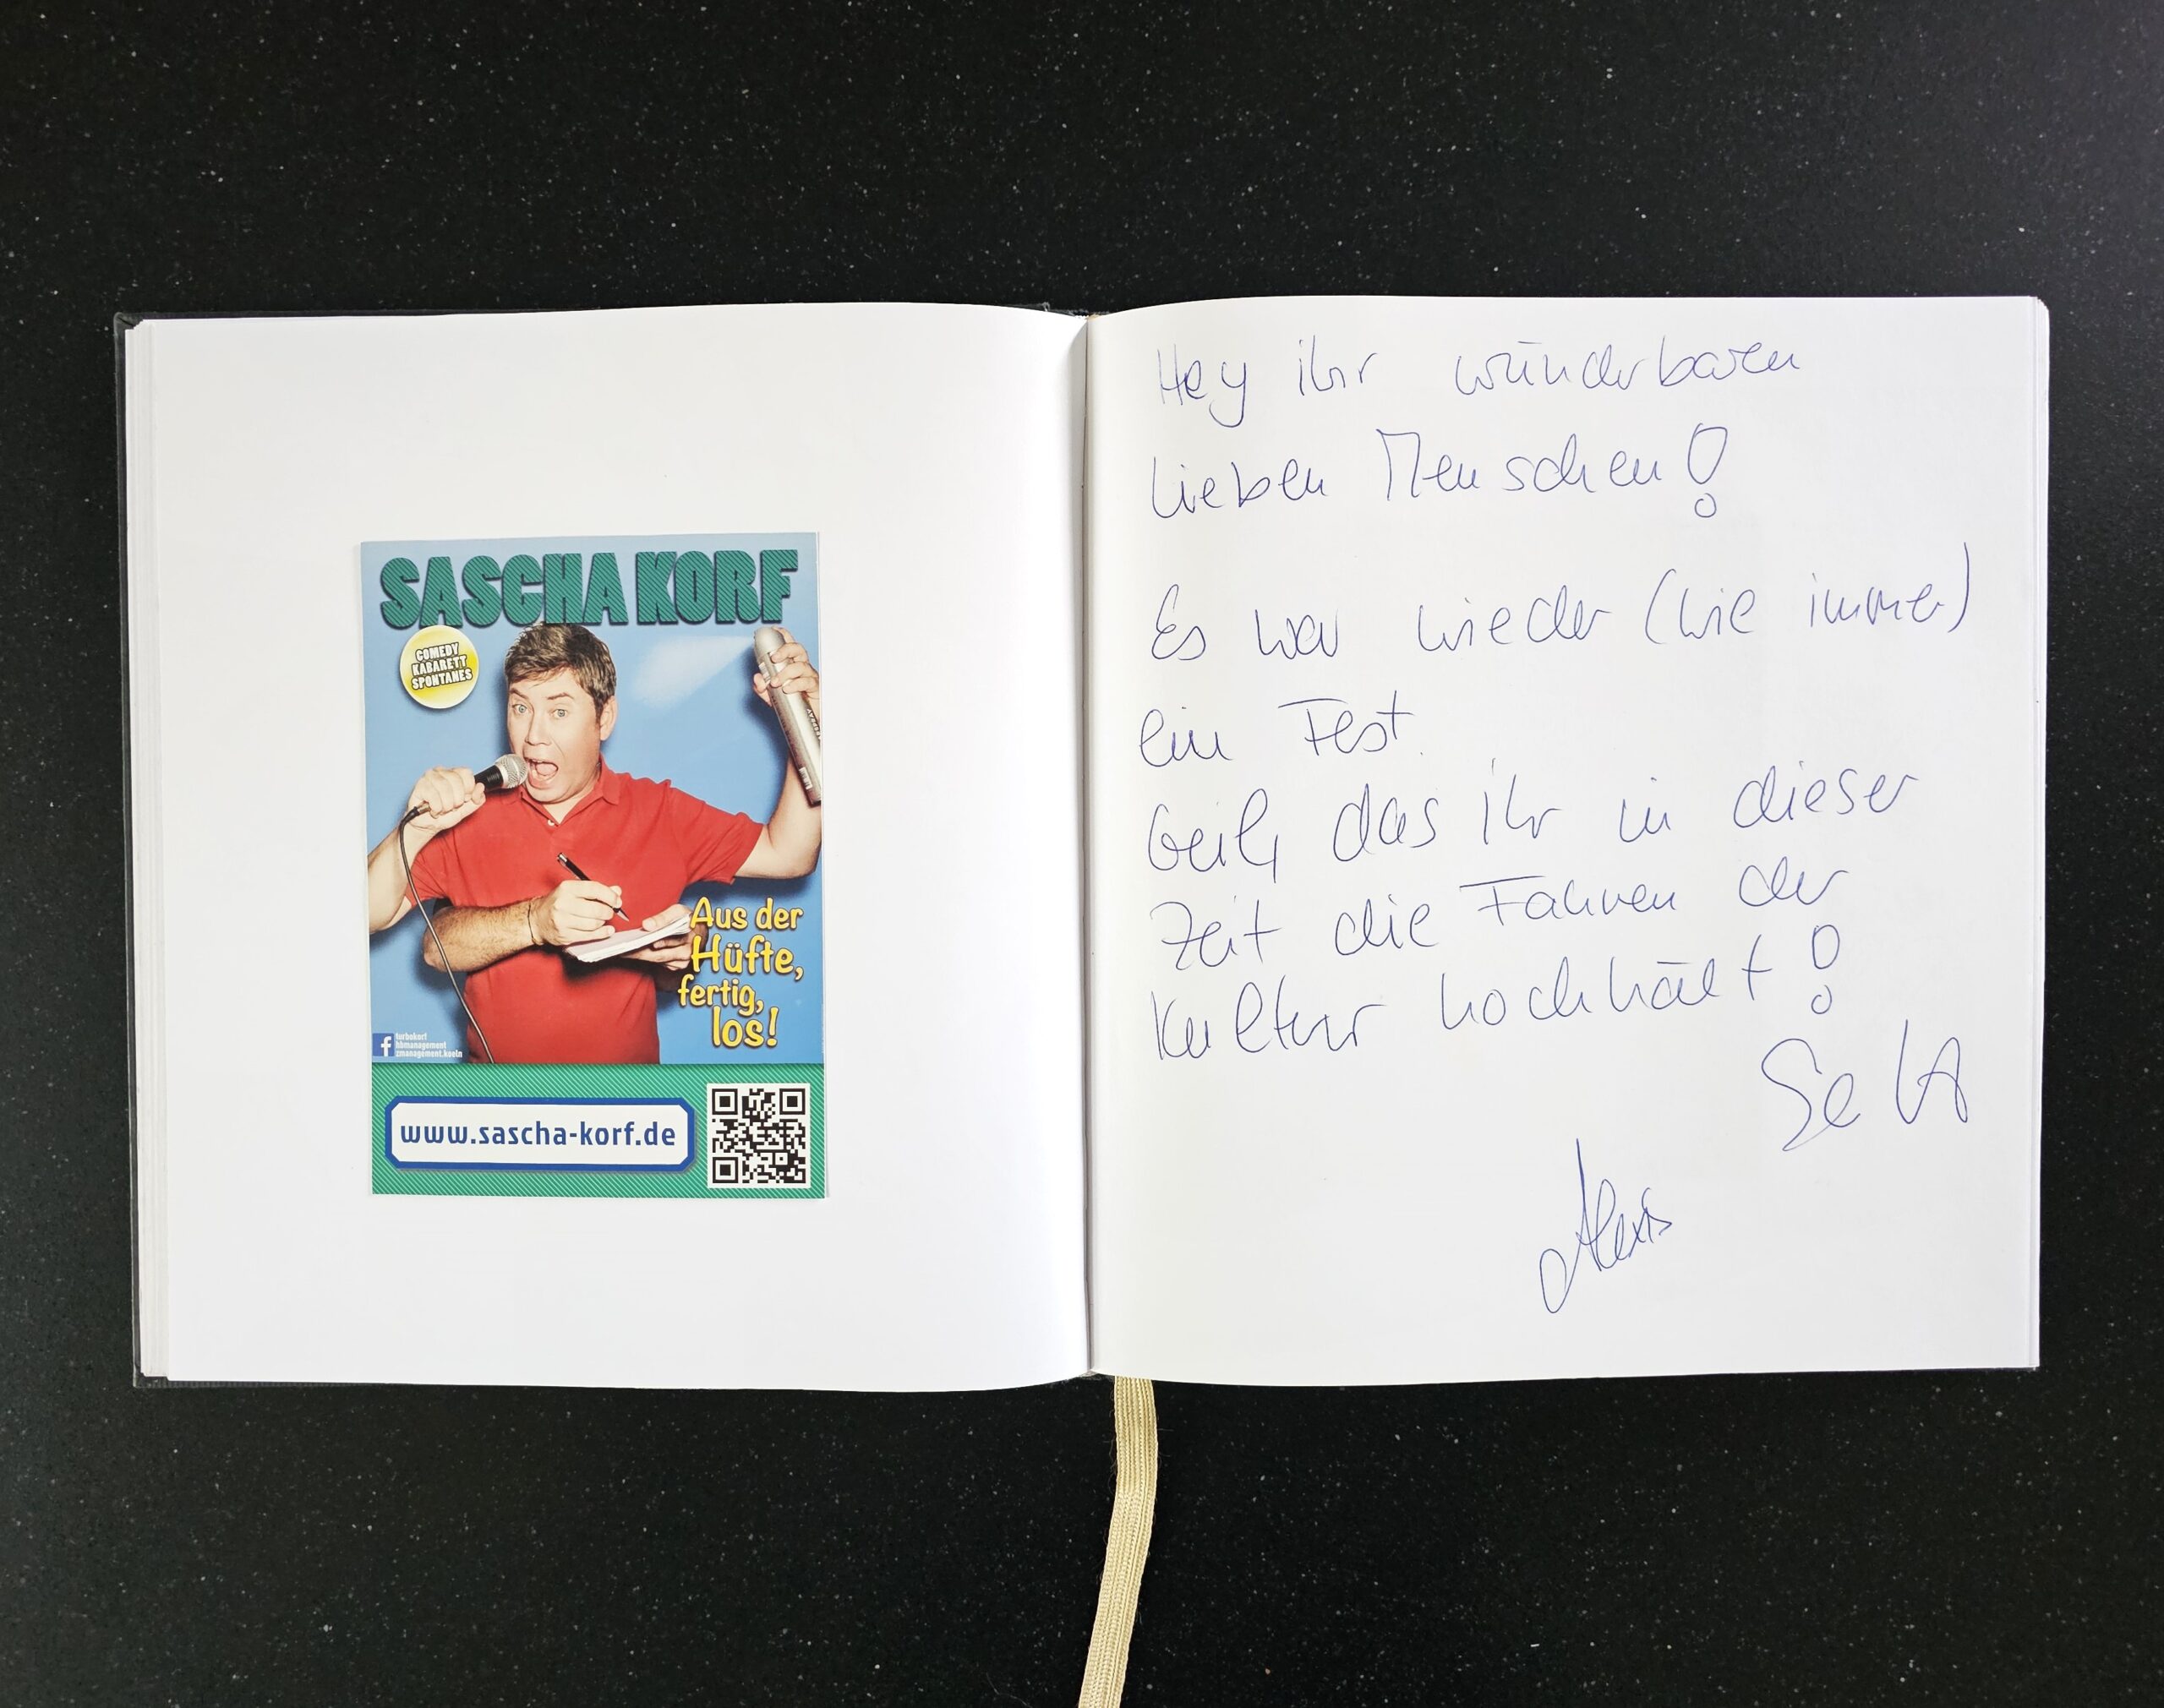 SASCHA KORF
COMEDY
KABARETT
SPONTANES
Aus der
Hüfte,
fertig,
los!
turbokorf
hbmanagement
zmanagement.koeln
www.sascha-korf.de
Hey ihr wunderbaren
lieben Menschen!
Es war wieder (wie immer)
ein Fest.
Geil, das ihr in dieser
Zeit die Fahnen der
Kultur hochhält!
Alexis